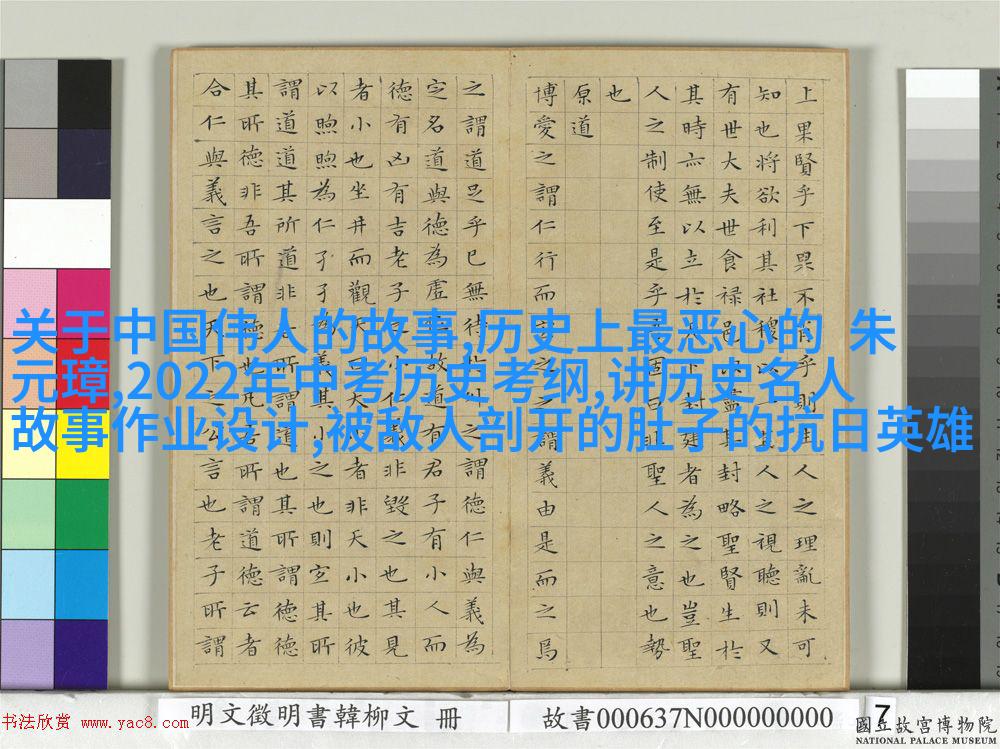 关于中国伟人的故事,历史上最恶心的 朱
元璋,2022年中考历史考纲,讲历史名人
故事作业设计,被敌人剖开的肚子的抗日英雄
上果賢乎下果不肖乎則生人之理亂未可
知也將欲利其社稷以一其人之視聽則又
有世大夫世食祿邑以盡其封略聖賢生於
其時亦無以立於天下封建者為之也豈聖
人之制使至是乎吾固曰非聖人之意也勢
也
原道
博愛之謂仁行而宜之之謂義由是而之焉
之謂道足乎己無待於外之謂德仁與義為
定名道與德為虛位故道有君子有小人而
德有凶有吉老子之小仁義非毀之也其見
者小也坐井而觀天曰天小者非天小也彼
以煦煦為仁孑孑為義其小之也則宜其所
謂道道其所道非吾所謂道也其所謂德德
其所德非吾所謂德也凡吾所謂道德云者
合仁與義言之也天下之公言也老子所謂
明文徵明書韓柳文 冊
故書000637N000000000
7
书法欣赏 www.yac8.com
國立故宮博物院
NATIONAL PALACE MUSEUM